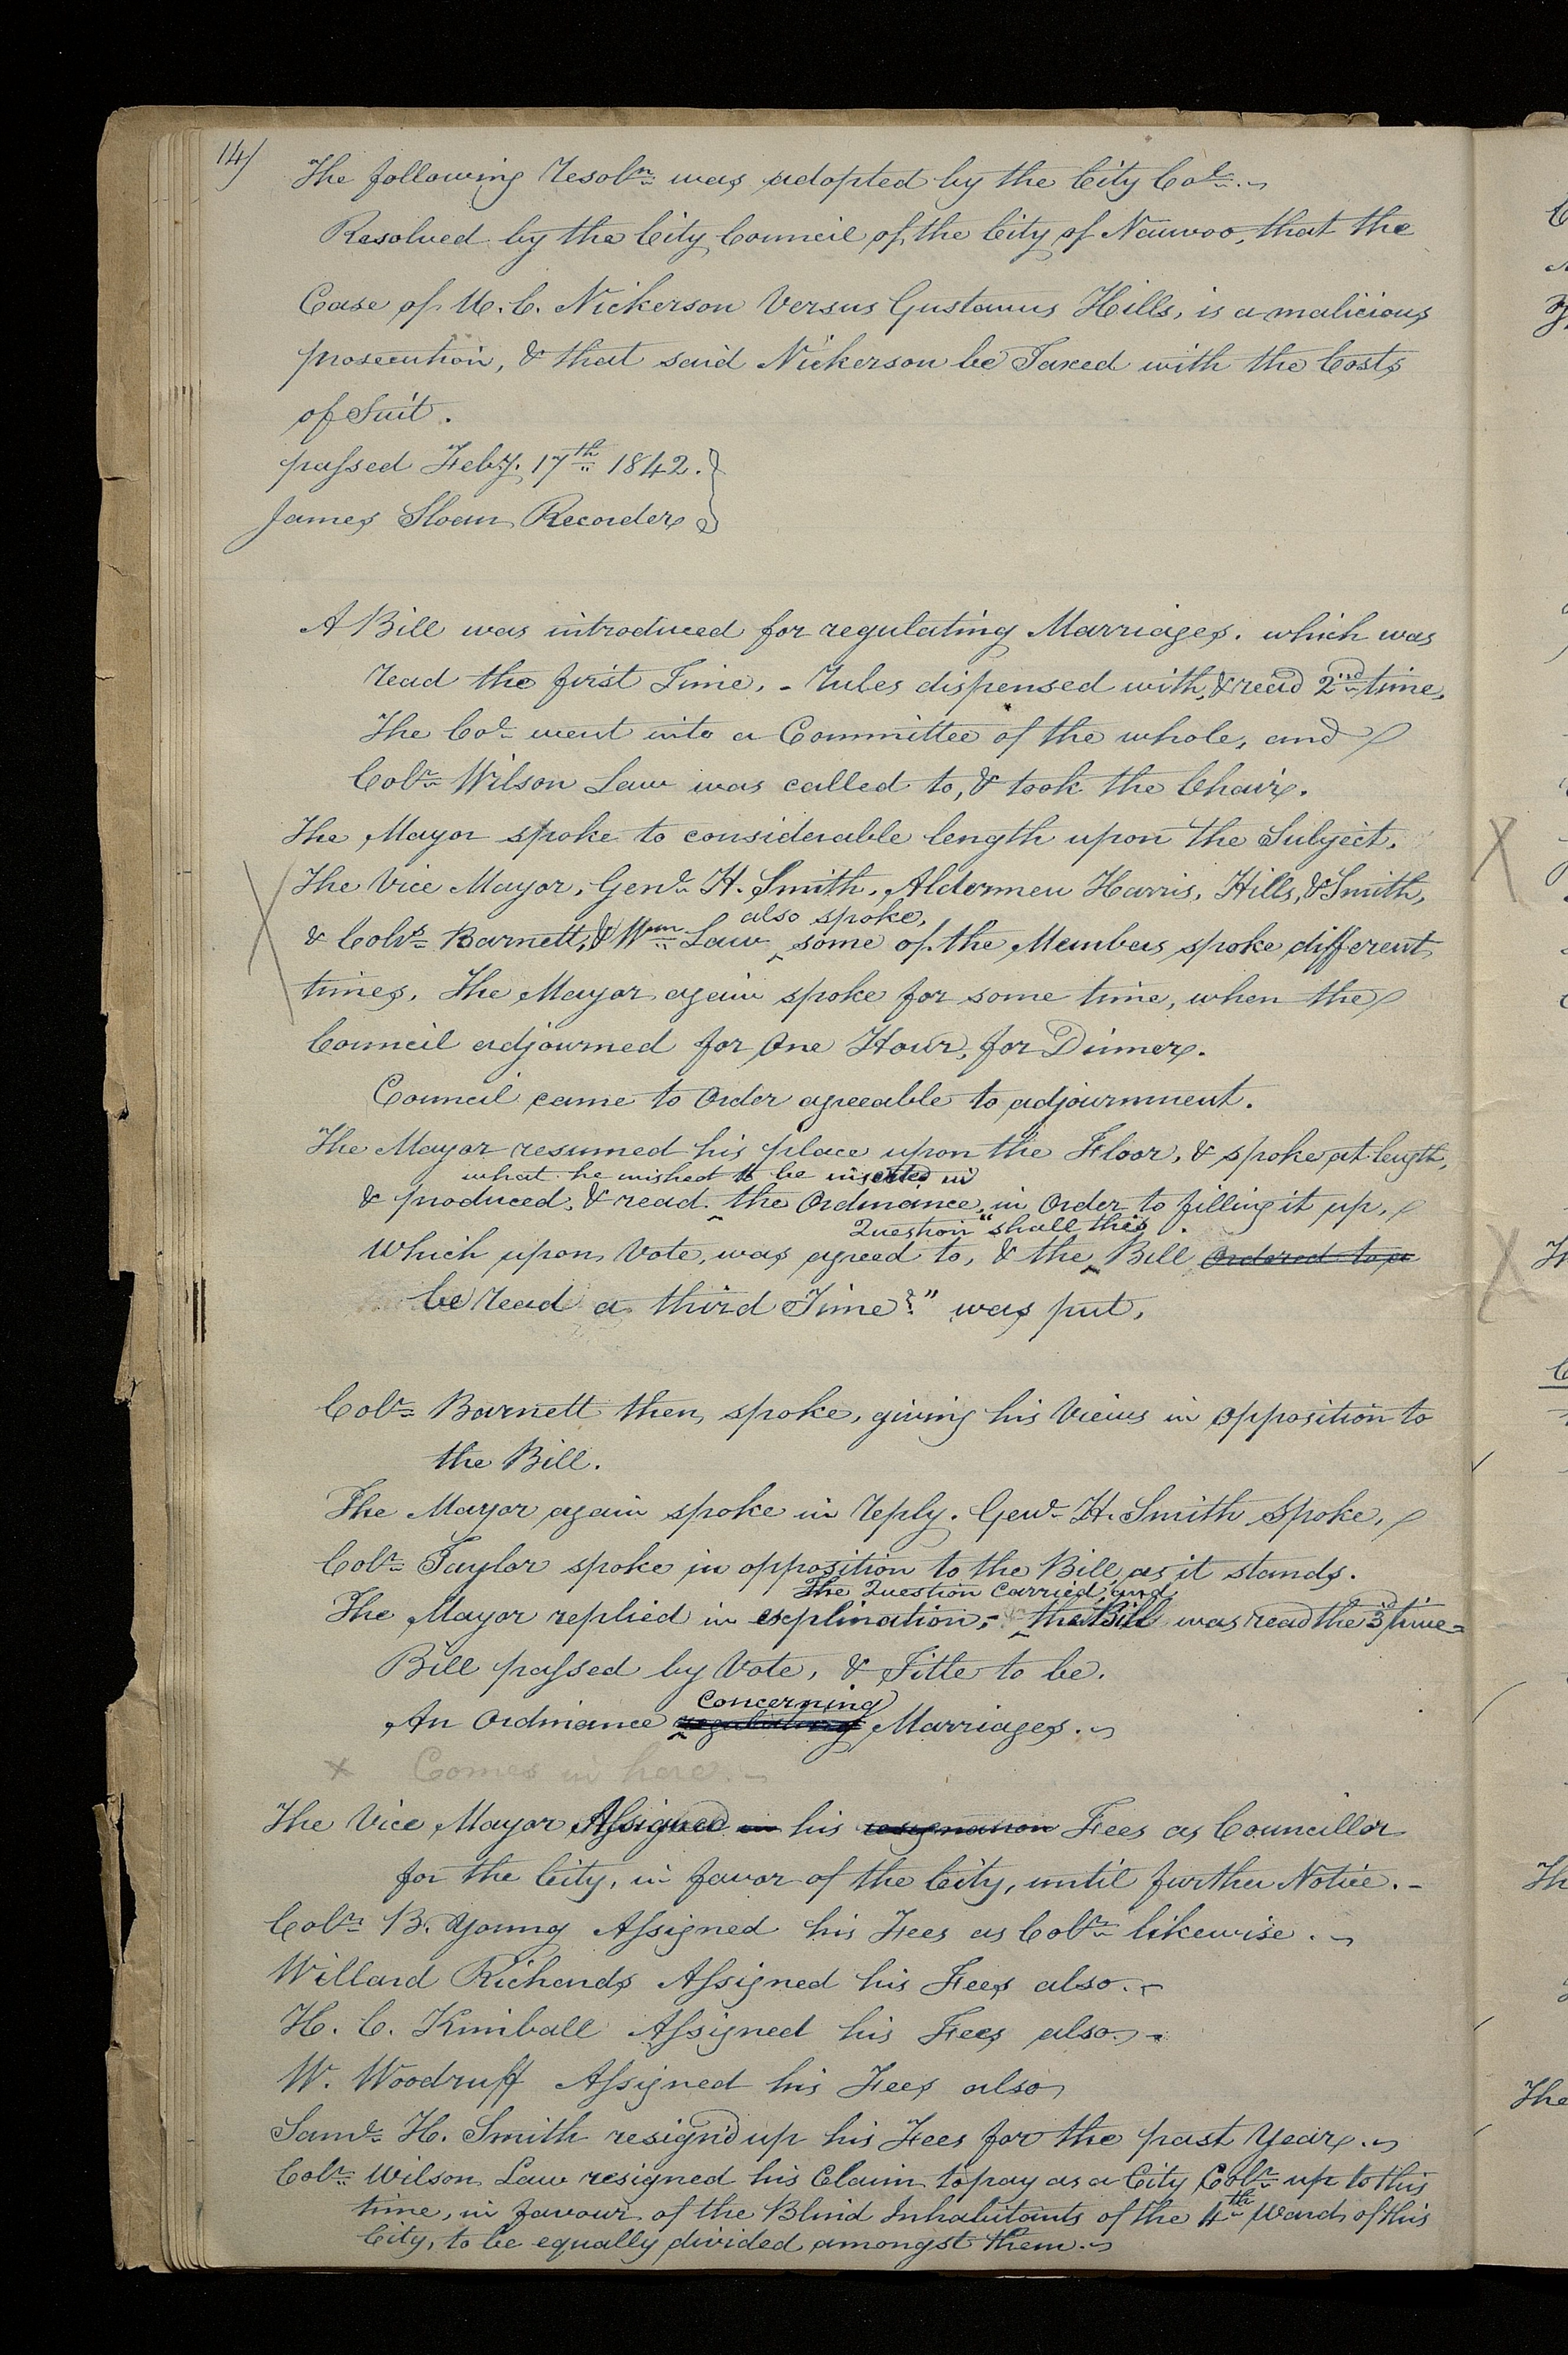 14/
The following resoln was adopted by the City Col.
Resolved by the City Council of the City of Nauvoo, that the
Case of U. C. Nickerson Versus Gustavus Hills, is a malicious
prosecution, & that said Nickerson be Taxed with the Costs
of Suit.
passed Feby. 17th 1842.
James Sloan Recorder
A Bill was introduced for regulating Marriages. which was
read the first Time, - rules dispensed with, & read 2nd time,
The Col went into a Committee of the whole, and
Colr Wilson Law was called to, & took the Chair.
The Mayor spoke to considerable length upon the Subject.
The Vice Mayor, Genl H. Smith, Aldermen Harris, Hills, & Smith,
also spoke,
& Colrs Barnett, & Wm Law, some of the Members spoke different
times. The Mayor again spoke for some time, when the
Council adjourned for One Hour, for Dinner.
Council came to Order agreeable to adjournment.
The Mayor resumed his place upon the Floor, & spoke at length,
what he wished to be inserted in
& produced, & read the Ordinance, in Order to filling it up,
Question "shall this
Which upon Vote, was agreed to, & the Bill Ordered to
be read a third Time?" was put,
Colr Barnett then spoke, giving his Views in opposition to
the Bill.
The Mayor again spoke in reply. Genl H. Smith Spoke,
Colr Taylor spoke in opposition to the Bill, as it stands.
The Question Carried, and
The Mayor replied in explination, - the Bill was read the 3d time
Bill passed by Vote, & Title to be.
Concerning
An Ordinance regulating Marriages.
x Comes in here. -
The Vice Mayor Assigned in his resignation Fees as Councillor
for the City, in favor of the City, until further Notice. -
Colr B. Young Assigned his Fees as Colr likewise.
Willard Richards Assigned his Fees also. -
H. C. Kimball Assigned his Fees also. -
W. Woodruff Assigned his Fees also
Saml H. Smith resign'd up his Fees for the past Year.
Colr Wilson Law resigned his Claim to pay as a City Colr up to this
time, in favour of the Blind Inhabitants of the 4th Ward of this
City, to be equally divided amongst them.